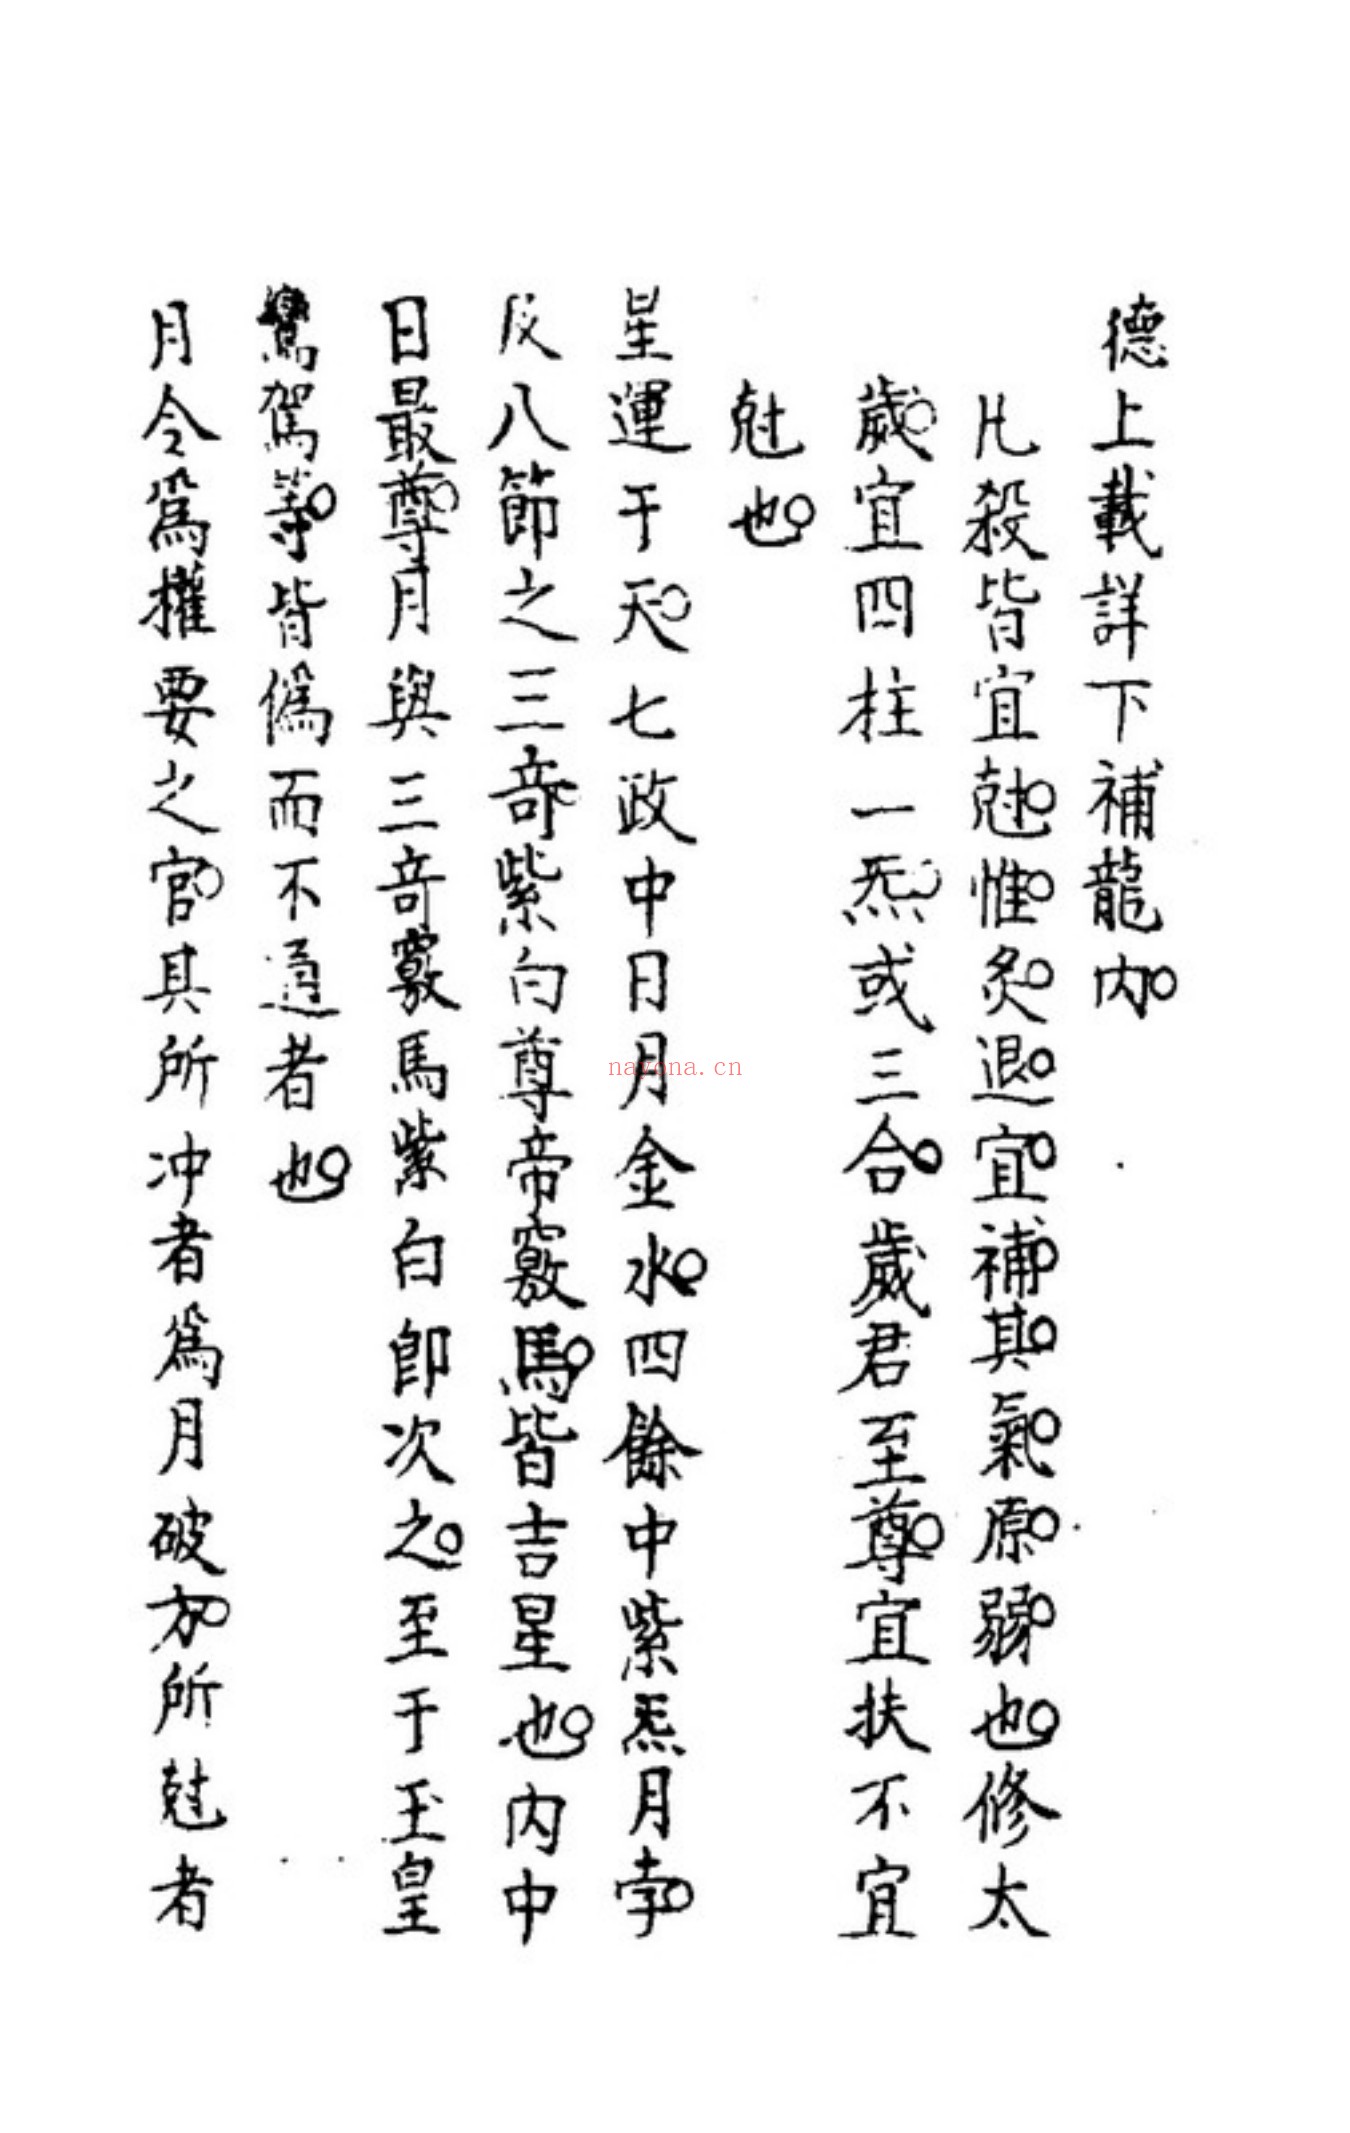 德上載詳下補龍內
凡殺皆宜尅惟炙退宜補其氣原弱也修太
歲宜四柱一炁或三合歲君至尊宜扶不宜
尅也
星運于天七政中日月金水四餘中紫炁月孛
及八節之三奇紫白尊帝竅馬皆吉星也內中
日最尊月與三奇竅馬紫白即次之至于玉皇
鸞駕等皆偽而不通者也
月令為權要之官其所冲者為月破方所尅者
nayona.cn